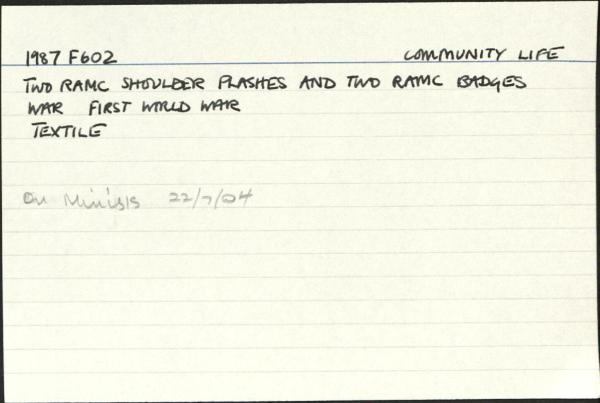 1987 F602 COMMUNITY LIFE
TWO RAMC SHOULDER FLASHES AND TWO RAMC BADGES
WAR FIRST WORLD WAR
TEXTILE
On Minisis 22/7/04